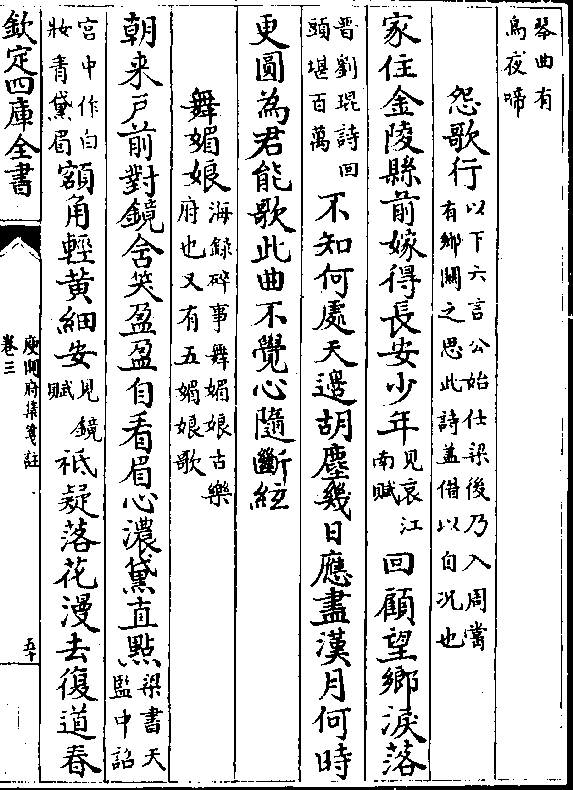 琴曲有
烏夜啼
怨歌行以下六言公始仕梁後乃入周嘗
有鄉關之思此詩蓋借以自况也
家住金陵縣前嫁得長安少年見哀江
南賦回顧望鄉淚落
晉劉琨詩回
頭堪百萬不知何處天邊胡塵幾日應盡漢月何時
更圓為君能歌此曲不覺心隨斷絃
舞媚娘海錄碎事舞媚娘古樂
府也又有五媚娘歌
朝来戶前對鏡含笑盈盈自看眉心濃黛直㸃梁書天
監中詔
宮中作白
妝青黛眉額角輕黃細安見鏡
賦祗疑落花漫去復道春
欽定四庫全書
庾開府集箋註
卷三
五十